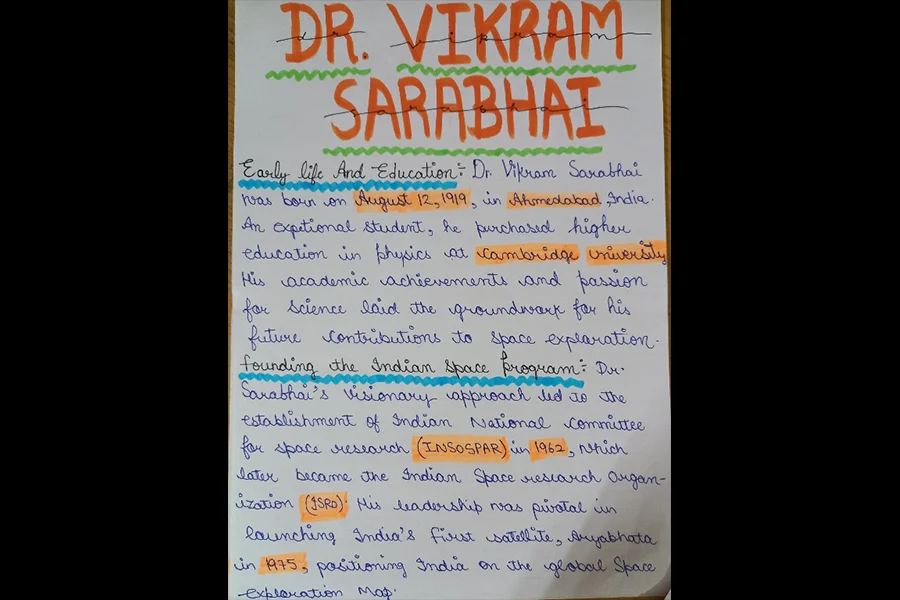 DR. VIKRAM
SARABHAI
Early life And Education:- Dr. Vikram Sarabhai
was born on August 12, 1919, in Ahmedabad, India.
An expetional student, he purchased higher
education in physics at Cambridge University
His academic achievements and passion
for science laid the groundwork for his
future contributions to space exploration.
founding the Indian Space Program:- Dr.
Sarabhai's visionary approach led to the
establishment of Indian National Committee
for space research (INSOSPAR) in 1962, which
later became the Indian Space research Organ-
ization (ISRO). His leadership was pivotal in
launching India's first satellite, Aryabhata
in 1975, positioning India on the global Space
Exploration Map.